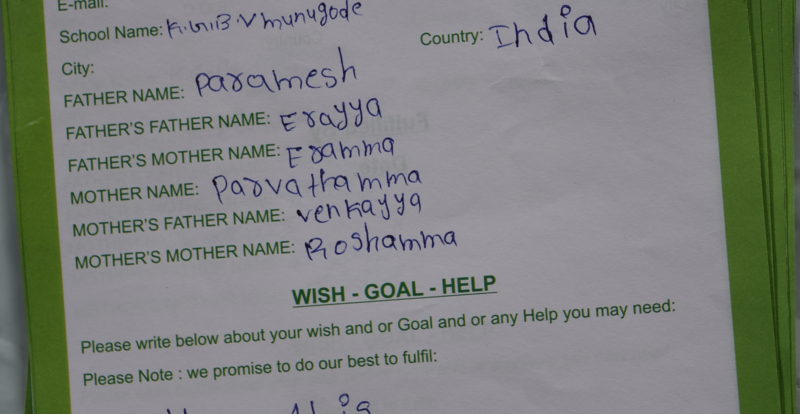 E-mail:
School Name: K.G.B.V munugode
Country: India
City:
FATHER NAME: Paramesh
FATHER'S FATHER NAME: Erayya
FATHER'S MOTHER NAME: Eramma
MOTHER NAME: Parvathamma
MOTHER'S FATHER NAME: venkayya
MOTHER'S MOTHER NAME: Roshamma
WISH - GOAL - HELP
Please write below about your wish and or Goal and or any Help you may need:
Please Note : we promise to do our best to fulfil: